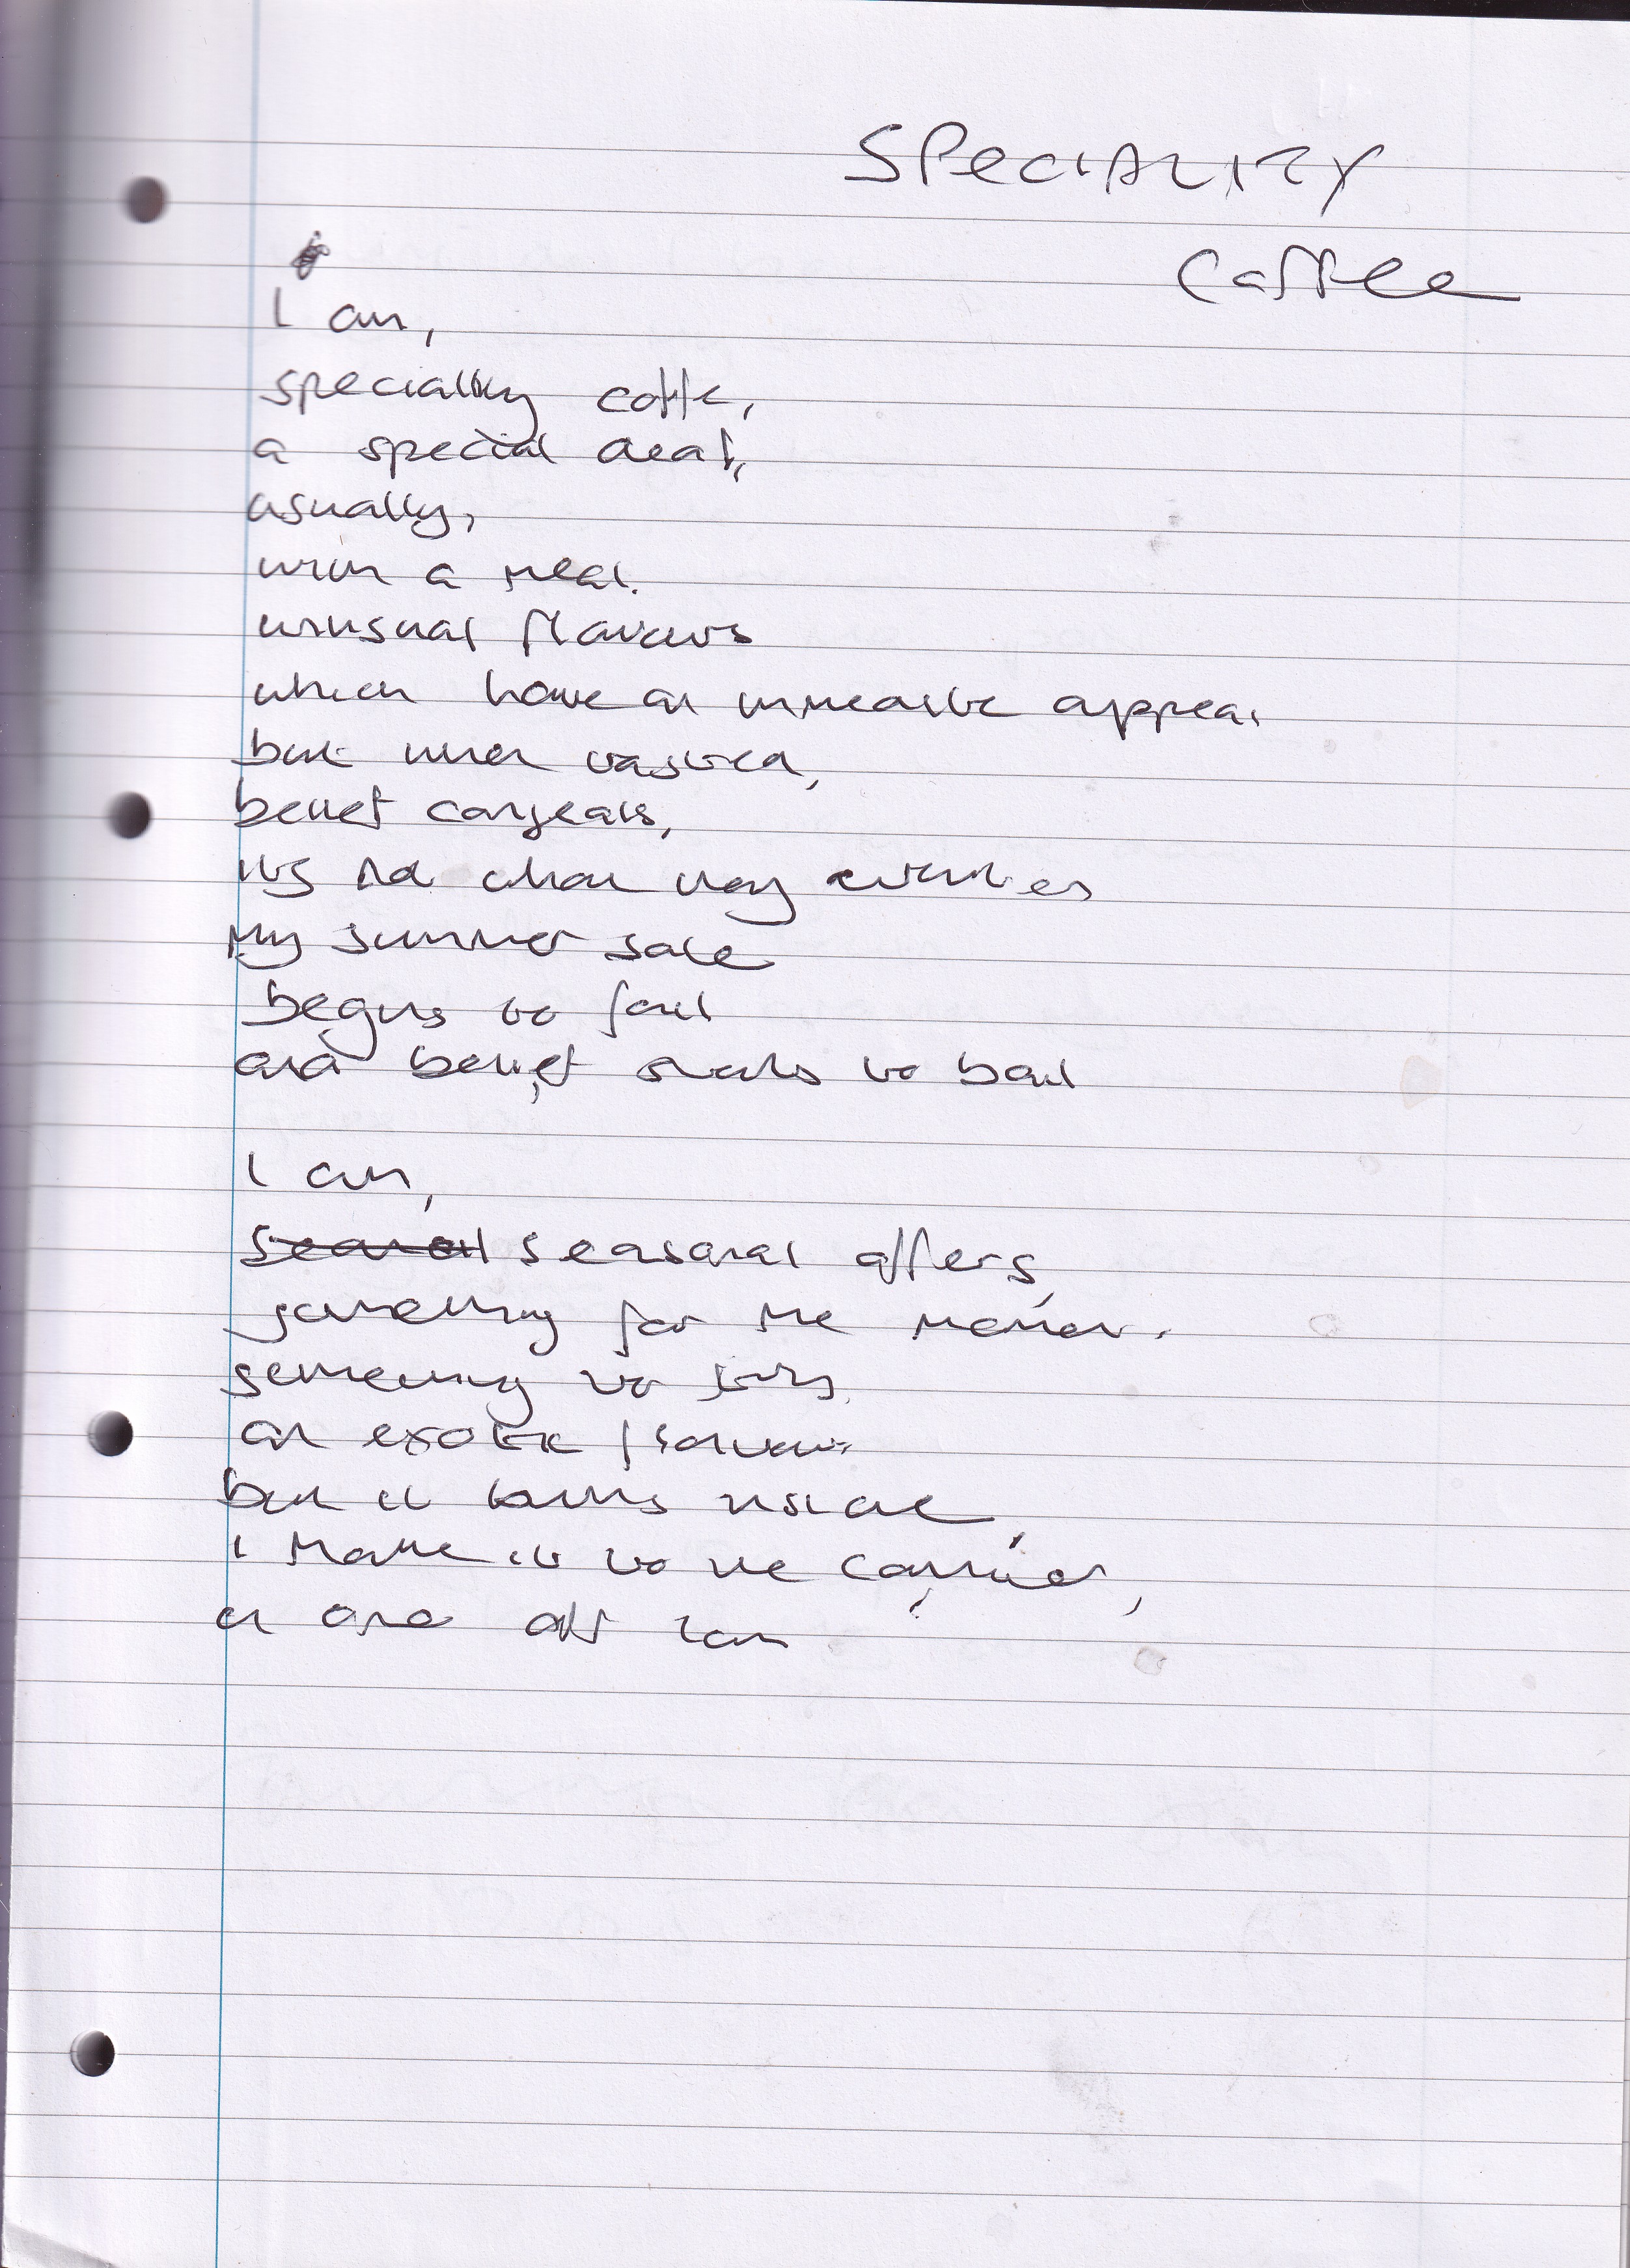 SPECIALITY
Coffee
I am,
speciality coffe,
a special deal,
usually,
with a meal.
unusual flavours
which have an immediate appeal
but when tasted,
belief congeals,
its not what they
My summer sale
begins to fail
and belief starts to bail
I am,
seasonal offers,
something for the moment.
something to
an exotic flavour
but it turns
I make it to the
a one off